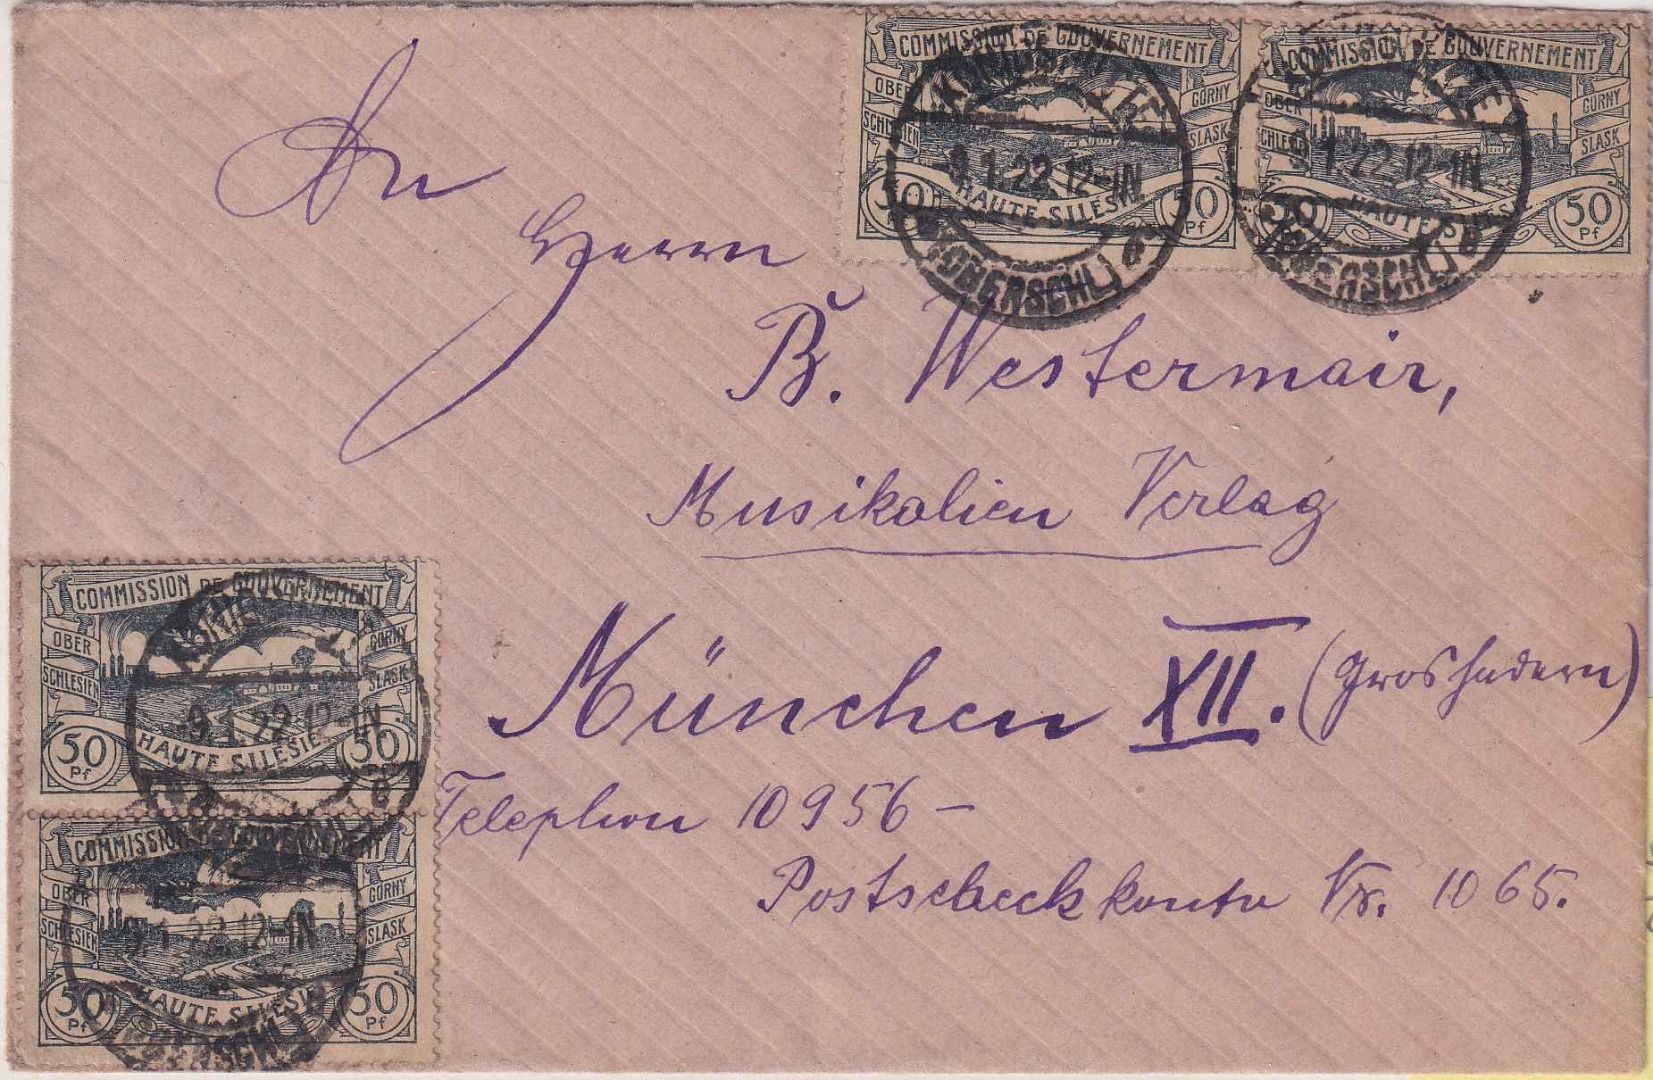 COMMISSION DE GOUVERNEMENT
OBER SCHLESIEN
GÓRNY ŚLĄSK
50 Pf
HAUTE SILESIE
50 Pf
COMMISSION DE GOUVERNEMENT
OBER SCHLESIEN
GÓRNY ŚLĄSK
50
HAUTE SILESIE
50 Pf
KÖNIGSHÜTTE
9.1.22.12-1N
(OBERSCHL) 6
KÖNIGSHÜTTE
9.1.22.12-1N
(OBERSCHL) 6
An
Herrn
B. Westermair,
Musikalien Verlag
München XII. (Groshadern)
Telephon 10956 –
Postscheckkonto Nr. 1065.
COMMISSION DE GOUVERNEMENT
OBER SCHLESIEN
GÓRNY ŚLĄSK
50 Pf
HAUTE SILESIE
50 Pf
9.1.22.12-1N
COMMISSION DE GOUVERNEMENT
OBER SCHLESIEN
GÓRNY ŚLĄSK
50 Pf
HAUTE SILESIE
50 Pf
9.1.22.12-1N
(OBERSCHL)